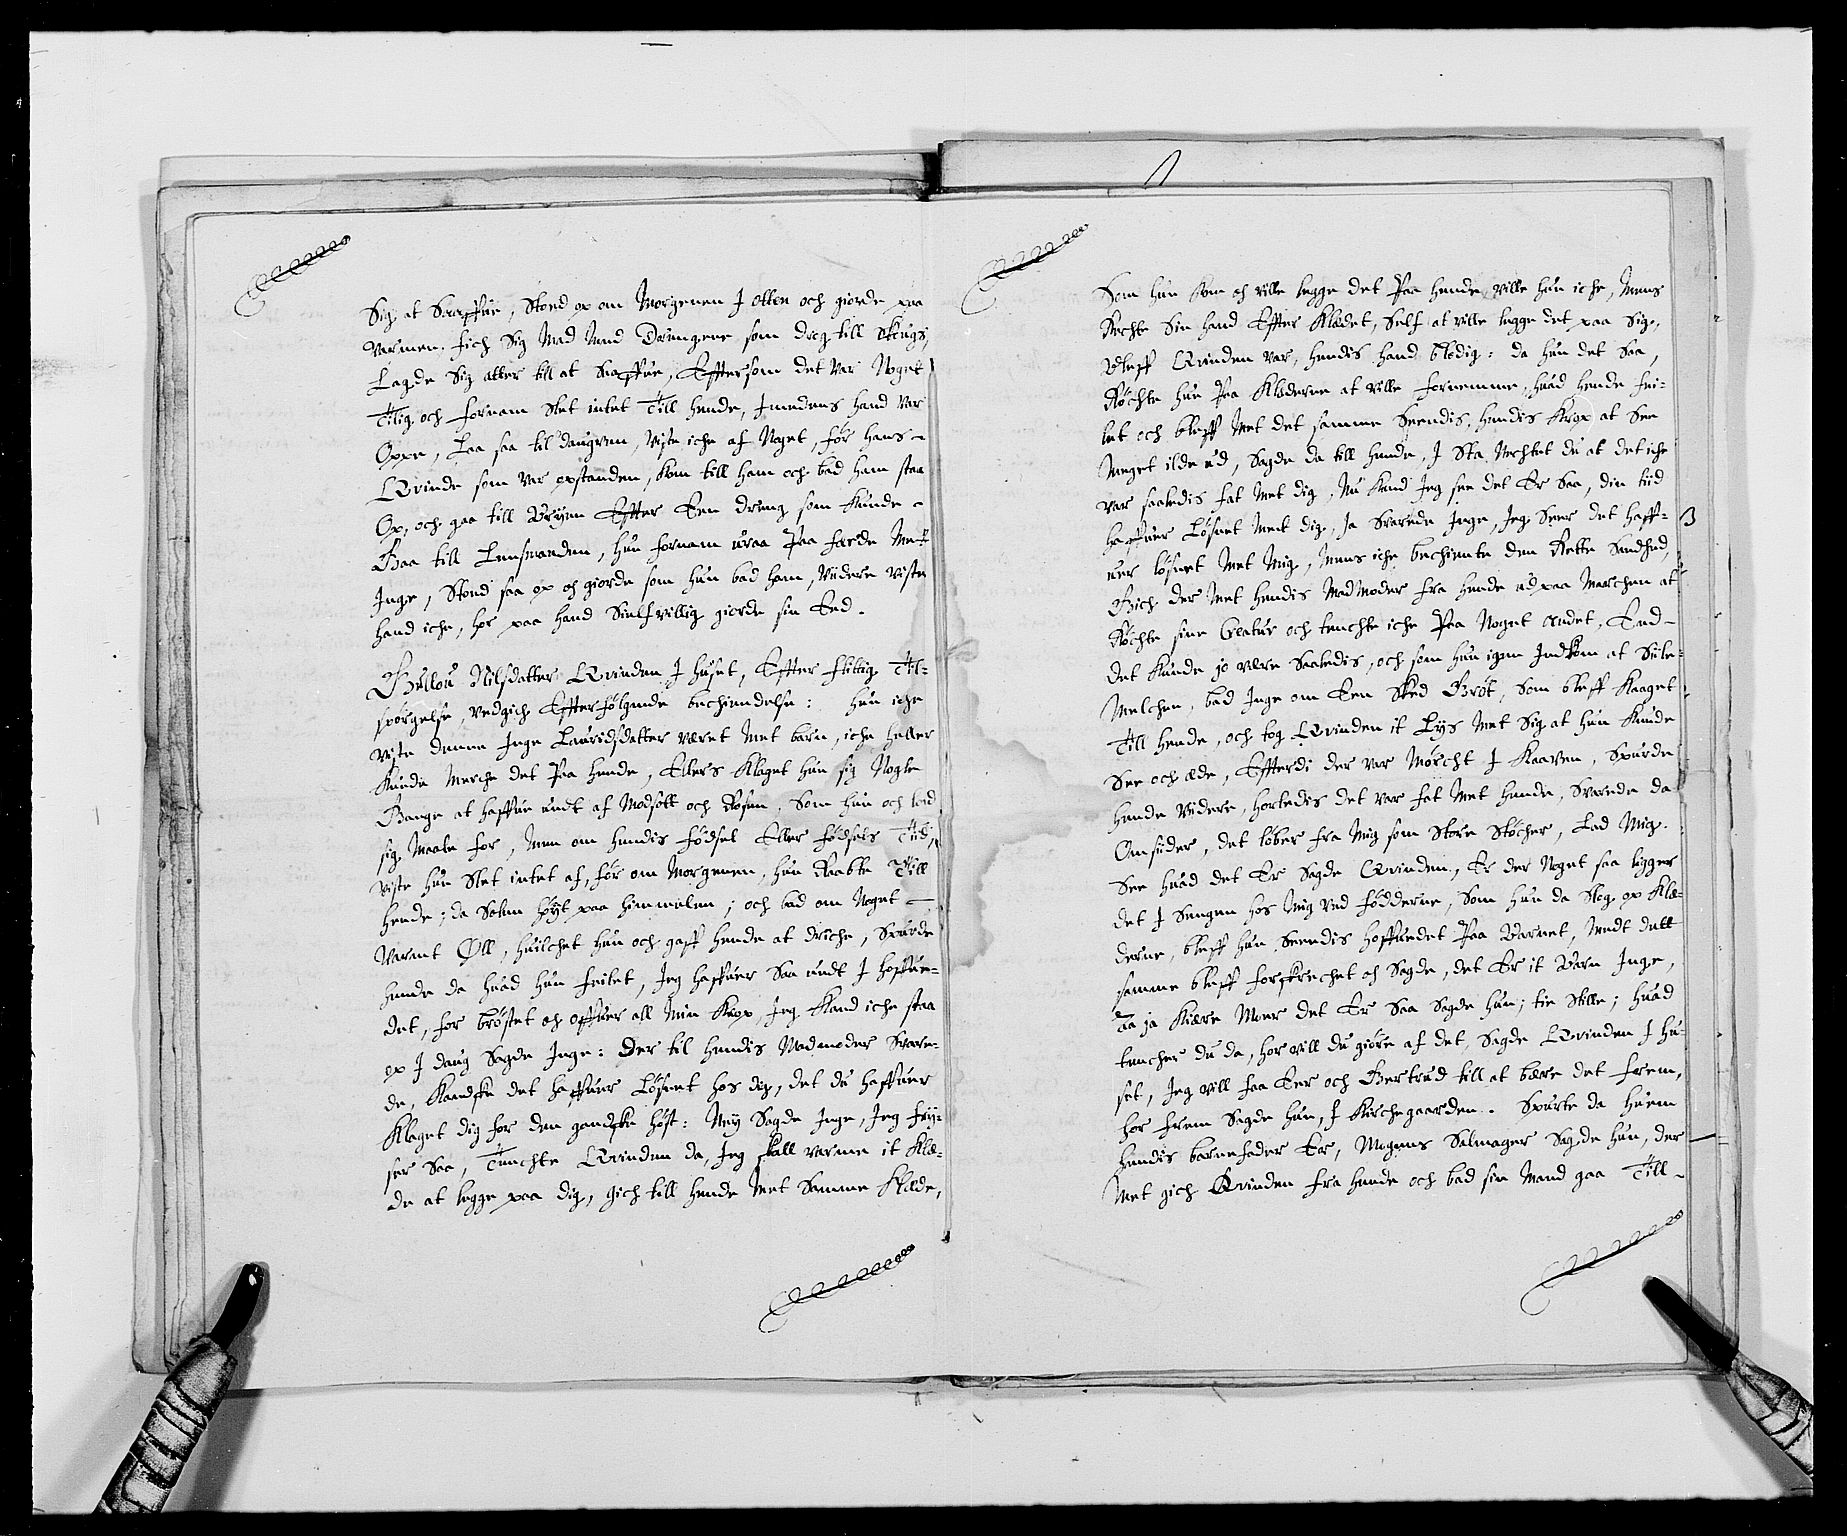 Sig at Saaffue, Stoed op om Morgenen J otten och giorde paa
varmen. fich Sig Mad Med Drengene som drog till Skougs,
Lagde Sig atter till at Saaffue, Efftersom det var Noget
Tilig och fornam Slet intet Till hende, Jmedens hand var
Oppe, Laa saa til daugven, viste iche af Noget, før hans
Qvinde som var opstanden, kom till ham och bad ham staa
Op, och gaa till Byen Effter Een dreng som kunde
Gaa till Lensmanden, hun fornam uraa Paa færde Met
Jnge, Stoed saa op och giorde som hun bad ham, Videre viste
hand iche, hor paa hand Sielfvillig giorde sin Eed.
Gullou Nilsdatter Qvinden J huset, Effter flittig Til-
spørgelse, vedgich Effterfølgende bechiendelse: hun iche
viste denne Jnge Lauridsdatter været Met barn, iche heller
kunde Merche det Paa hende, Ellers klaget hun sig Nogle
Gange at haffue undt af Modsott och Rosen, Som hun och loed
sig Maale for, Men om hendis fødsel Eller fødsels Tiid,
viste hun Slet intet af, før om Morgenen, hun Raabte Till
hende; da Solen høyt paa himmelen; och bad om Noget
Varmt Øll, huilchet hun och gaff hende at driche, Spurde
hende da huad hun feilet, Jeg haffuer Saa undt J hoffue-
det, for brøstet och offuer all Min Krop, Jeg kand iche staa
op J daug Sagde Jnge: Der til hendis Madmoder Svare-
de, kandske det haffuer Løsnet hos dig, det du haffuer
klaget dig for den gandske høst: Ney Sagde Jnge, Jeg fry-
ser Saa, Tenchte Qvinden da, Jeg skall varme it Klæ-
de at legge paa dig, gich till hende Met Samme Klæde,
Som hun kom och ville legge det Paa hende, ville hun iche, Mens
Rechte Sin hand Effter Klædet, Self at ville legge det paa Sig,
Bleff Qvinden var, hendis hand blodig: da hun det Saa,
Røchte hun Paa Klæderne at ville fornemme, huad hende fei-
let och bleff Met det samme Seendis, hendis Krop at See
Meget ilde ud, Sagde da till hende, J Sta Nechtet du at det iche
var saaledis fat Met dig, Nu kand Jeg see det Er Saa, din tiid
haffuer Løsnet Met dig, Ja Svarede Jnge, Jeg Seer det haff-
uer løsnet Met Mig, Mens iche bechiente den Rette Sandhed,
Gich der Met hendis Madmoder fra hende ud paa Marchen at
Røchte sine Creatur och tenchte iche Paa Noget Andet, End
det kunde jo være Saaledis, och som hun igien Jndkom at Siile
Melchen, bad Jnge om Een Sked Grøt, Som bleff kaaget
Till hende, och tog Qvinden it Lys Met Sig at hun kunde
See och æde, Effterdi der var Mørcht J Kaaven, Spurde
hende Videre, horledis det var fat Met hende, Svarede da
Omsiider, det løber fra Mig som Store Støcher, Lad Mig
See huad det Er Sagde Qvinden, Er der Noget saa ligger
det J Sengen hos Mig ved fødderne, Som hun da Slog op Klæ-
derne, bleff hun Seendis hoffuedet Paa Barnet, Medt dett
samme bleff forskrechet och Sagde, det Er it Barn Jnge,
Aa ja Kiære Moer det Er Saa Sagde hun; tie Stille; huad
tencher du da, hor vill du giøre af det, Sagde Qvinden J hu-
set, Jeg vill faa Eer och Gertrud till at bære det frem,
hor frem Sagde hun, J Kirchegaarden. Spurte da huem
hendis barnefader Er, Mogens Salmager Sagde hun, der
Met gich Qvinden fra hende och bad sin Mand gaa Till